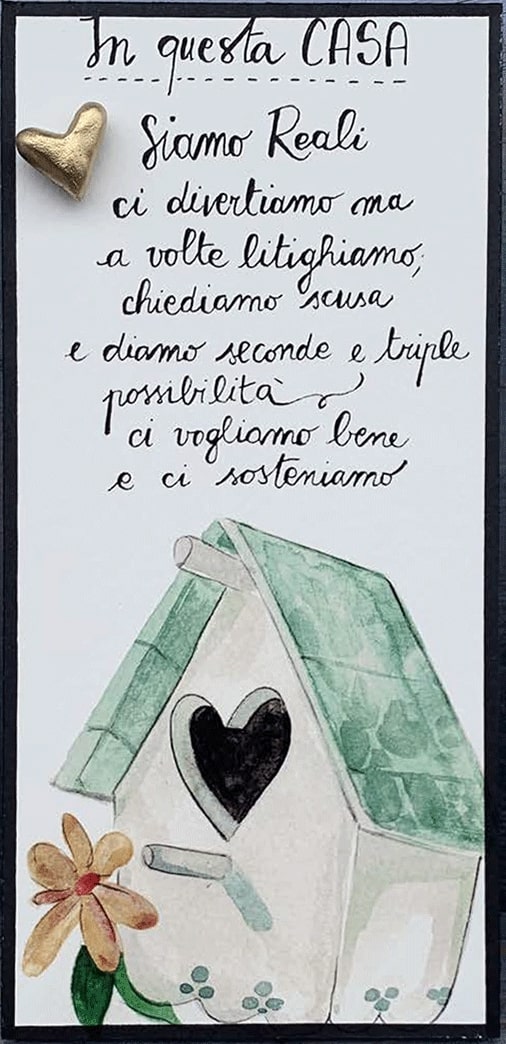 In questa CASA
Siamo Reali
ci divertiamo ma
a volte litighiamo,
chiediamo scusa
e diamo seconde e triple
possibilità
ci vogliamo bene
e ci sosteniamo